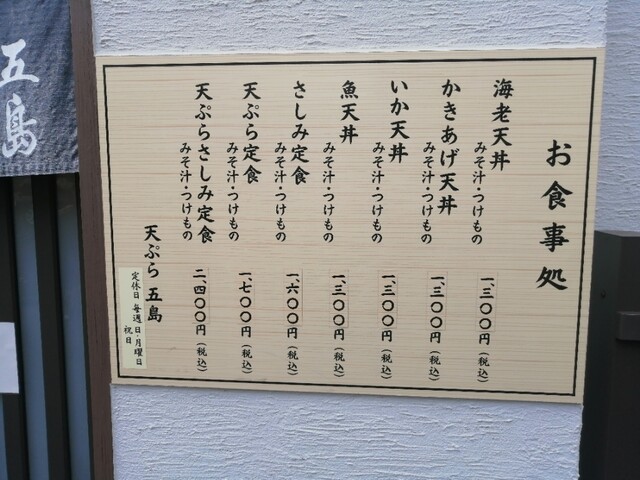 お食事処
海老天丼
みそ汁・つけもの
一、三〇〇円(税込)
かきあげ天丼
みそ汁・つけもの
一、三〇〇円(税込)
いか天丼
みそ汁・つけもの
一、三〇〇円(税込)
魚天丼
みそ汁・つけもの
一、三〇〇円(税込)
さしみ定食
みそ汁・つけもの
一、六〇〇円(税込)
天ぷら定食
みそ汁・つけもの
一、七〇〇円(税込)
天ぷらさしみ定食
みそ汁・つけもの
二、四〇〇円(税込)
天ぷら 五島
定休日 毎週 日・月曜日
祝日
五島